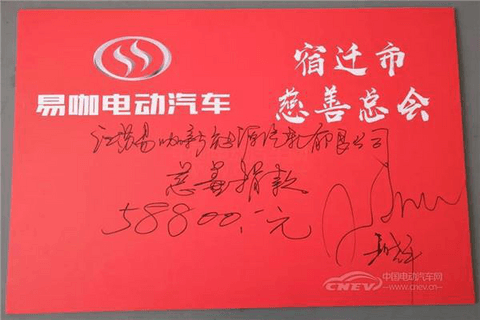 易咖电动汽车
宿迁市
慈善总会
江苏易咖新能源汽车有限公司
慈善捐款
58800.一元
中国电动汽车网
CNEV
www.cnev.cn